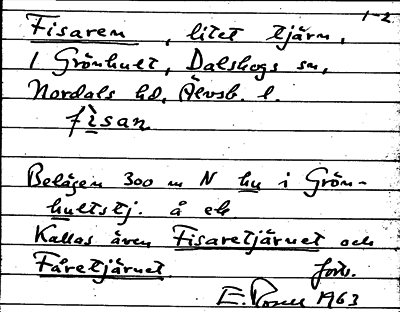 1-2
Fisaren, litet tjärn,
I Grönhult, Dalskogs sn,
Nordals hd, Älvsb. l.
fìsan
Belägen 300 m N hu i Grön-
hultstj. å ek
Kallas även Fisaretjärnet och
Fåretjärnet. forts.
E. 1963